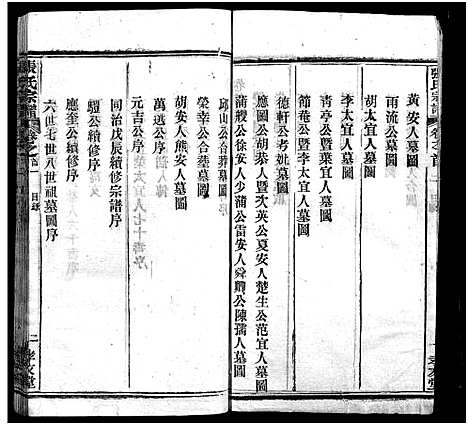 張氏宗譜 卷之首一 目錄
黃安人墓圖
雨流公墓圖
胡太宜人墓圖
李太宜人墓圖
青亭公暨葉宜人墓圖
節菴公暨李太宜人墓圖
德軒公考妣墓圖
應圖公胡恭人暨次英公夏安人楚生公范宜人墓圖
蒲襯公徐安人少蒲公雷安人舜卿公陳孺人墓圖
邱山公合葬墓圖
榮幸公合葬墓圖
胡安人熊安人墓圖
萬選公序
元吉公序
同治戊辰續修宗譜序
驌公續修序
應奎公續修序
六世七世八世祖墓圖序
張氏宗譜 卷之首一 目錄
二 孝友堂